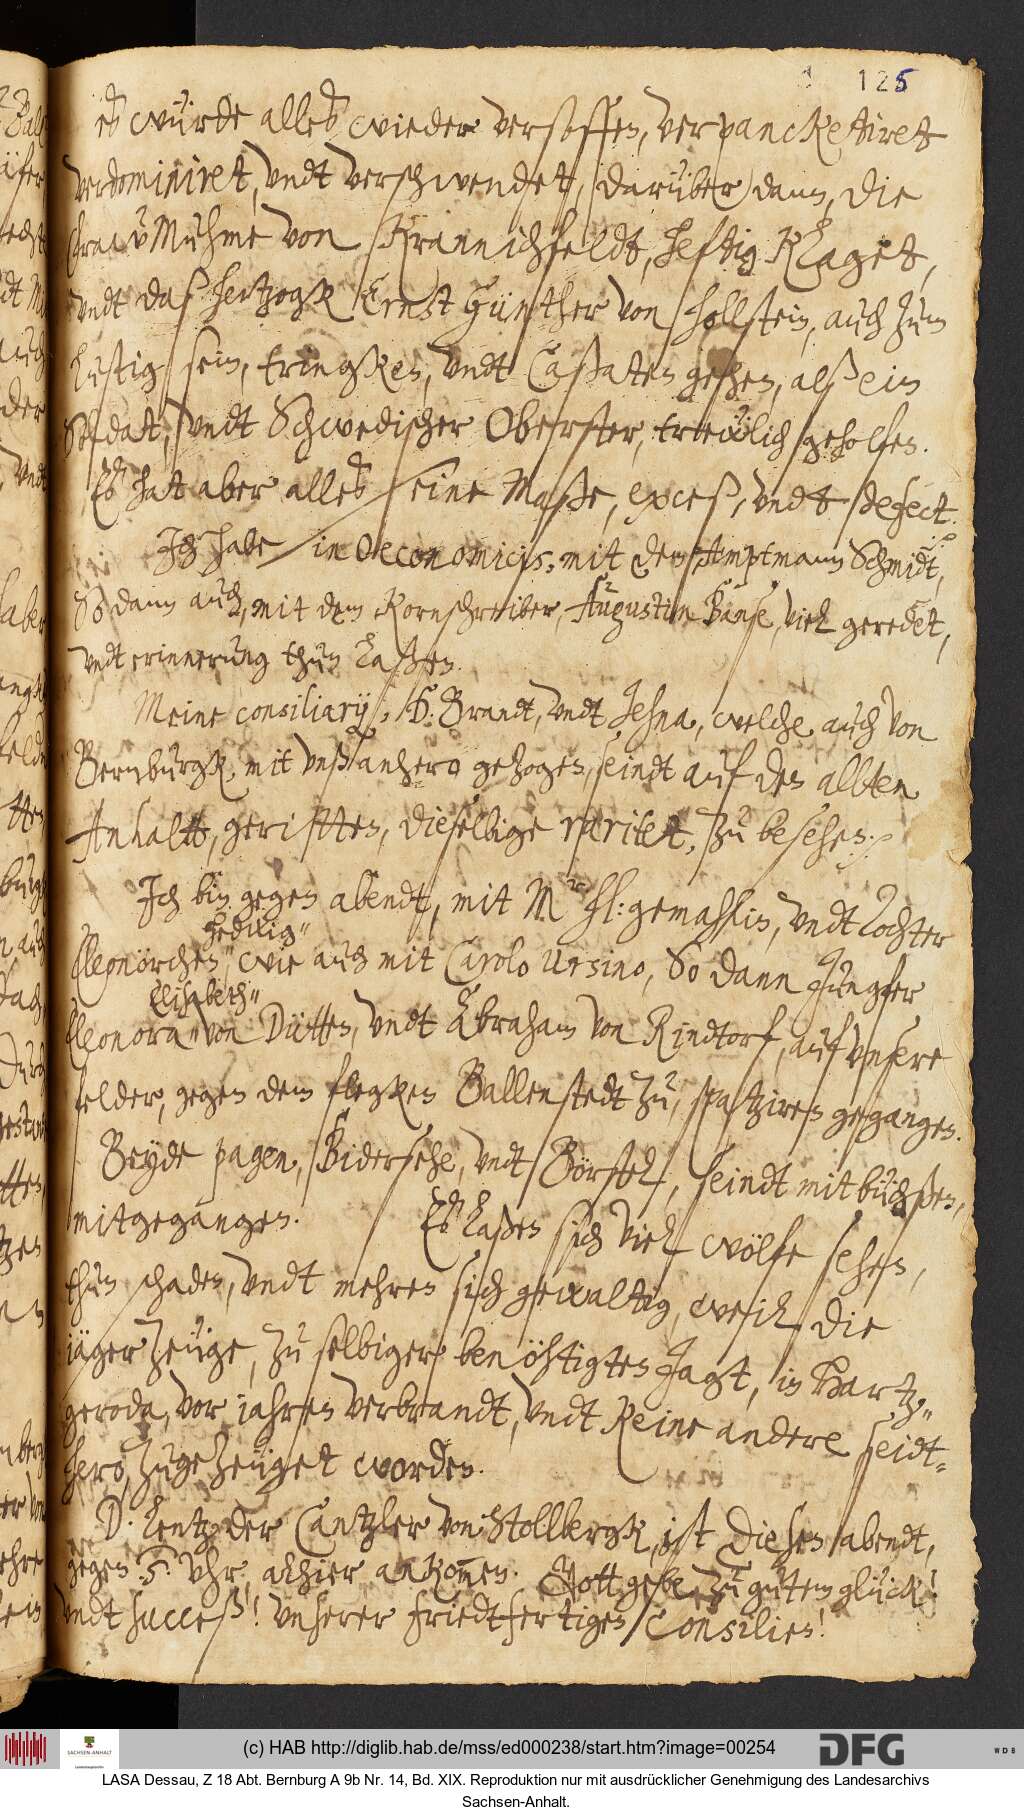 125
es würde alles wieder versoffen, verpanckettiret
verdominiret, undt verschwendet, darüber dann, die
fraw Muhme von Krannichfeldt, heftig klaget,
undt daß hertzogk Ernst Günther von hollstein, auch zum
lustig sein, tringken, undt Caßaten gehen, alß ein
Soldat, undt Schwedischer Oberster, trewlich geholfen.
Es hat aber alles seine Maße, exceß, undt defect.
Ich habe in Oeconomicis, mit dem Amptmann Schmidt,
So dann auch, mit dem Kornschreiber, Augustin Banse, viel geredet,
undt erinnerung thun laßen.
Meine consiliarij, D. Brandt, undt Jehna, welche auch von
Bernburgk mit unß anhero gezogen, seindt auf den allten
Anhaltt, gerittten, dieselbige raritet, zu besehen.
Ich bin gegen abendt, mit Mr hl: gemahlin, undt Tochter
hedwig"
Eleonörchen" wie auch mit Carolo Ursino, So dann Jungfer
Elisabeth"
Eleonora" von Dütten, undt Abraham von Rindtorf, auf unsere
felder, gegen dem flegken Ballenstedt zu, spatziren gegangen.
Beyde pagen, Bidersehe, undt Börstel, seindt mit büchßen,
mitgegangen. Es laßen sich viel wölfe sehen,
thun schaden, undt mehren sich gewaltig, weil die
jäger zeuge, zu selbiger benöhtigten Jagt, in Hartz"
geroda, vor jahren verbrandt, undt keine andere seidt=
hero, zugezeuget worden.
D. Lentz, der Cantzler von Stollbergk, ist diesen abendt,
gegen 5 Uhr, alhier ankommen. Gott gebe, zu gutem glück!
undt succeß! unserer friedtfertigen Consilien!
(c) HAB http://diglib.hab.de/mss/ed000238/start.htm?image=00254
SACHSEN-ANHALT
DFG
WDB
LASA Dessau, Z 18 Abt. Bernburg A 9b Nr. 14, Bd. XIX. Reproduktion nur mit ausdrücklicher Genehmigung des Landesarchivs
Sachsen-Anhalt.